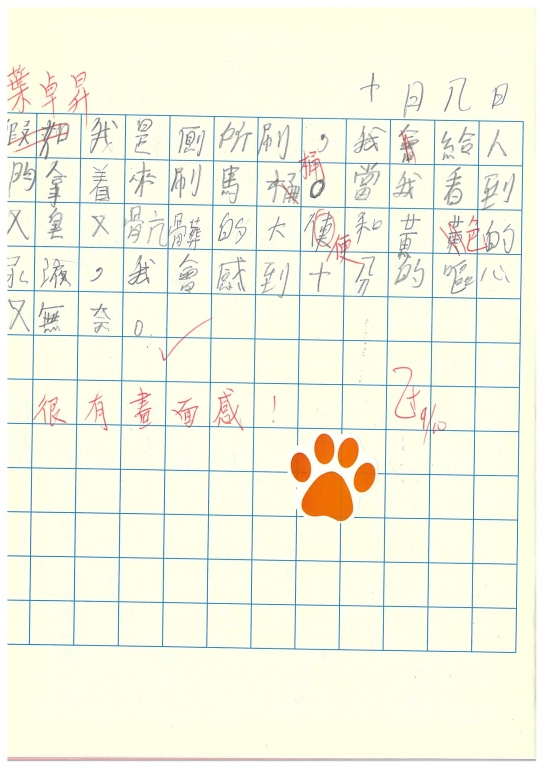 葉卓昇
十月八日
假如我是廁所刷，我會給人
們拿着來刷馬桶。當我看到
桶
又臭又骯髒的大便和黃黃色的
便
尿液，我會感到十分的嘔心
又無奈。
很有畫面感！
9/10